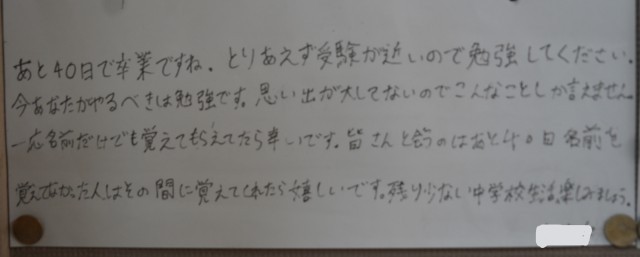 あと40日で卒業ですね。とりあえず受験が近いので勉強してください。
今あなたがやるべきは勉強です。思い出が大してないのでこんなことしか言えません。
一応名前だけでも覚えてもらえてたら幸いです。皆さんと会うのはあと40日名前を
覚えてなかった人はその間に覚えてくれたら嬉しいです。残り少ない中学校生活楽しみましょう。